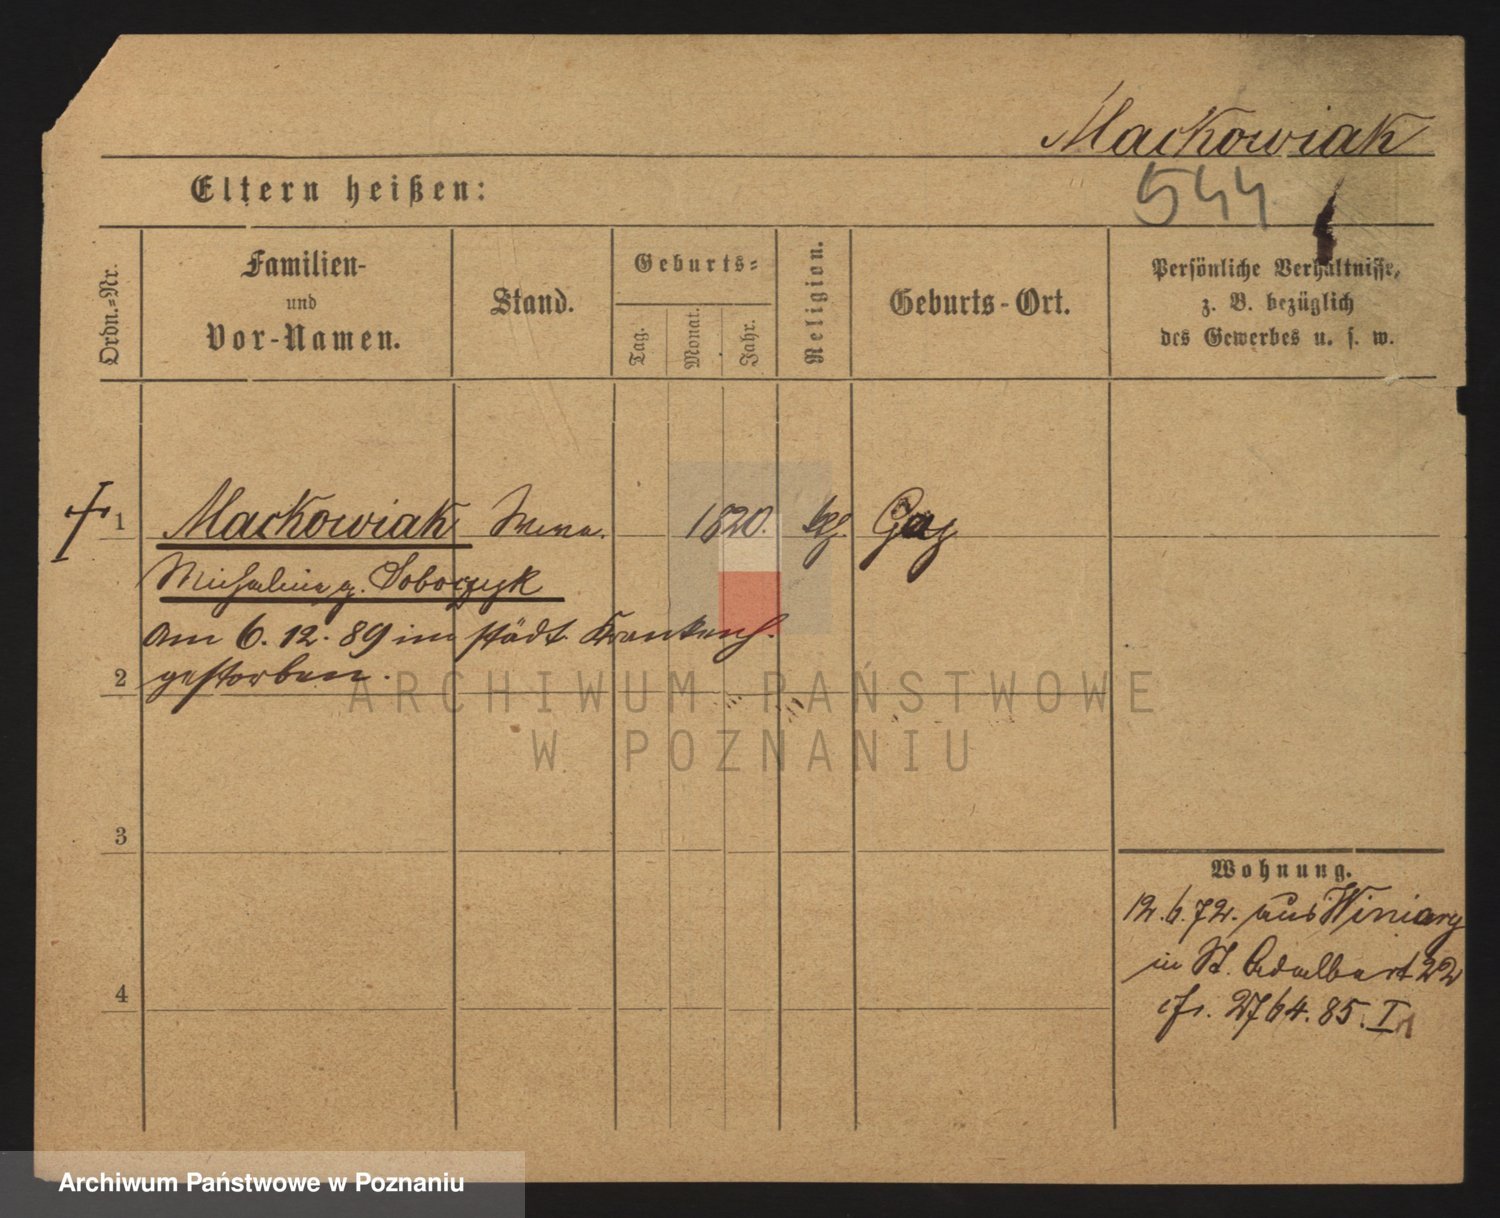 Mackowiak
Eltern heißen:
544
Ordn.-Nr.
Familien-
und
Vor-Namen.
Stand.
Geburts-
Tag.
Monat.
Jahr.
Religion.
Geburts-Ort.
Persönliche Verhältnisse,
z. B. bezüglich
des Gewerbes u. s. w.
1 Mackowiak 1820. Gay
Michalina g. Soboczyk
am 6.12.89 im städt. Krankenh.
gestorben.
2
ARCHIWUM PAŃSTWOWE
W POZNANIU
3
Wohnung.
12.6.72. aus Winiary
in St. Adalbert 22
cfr. 2764.85.I
4
Archiwum Państwowe w Poznaniu